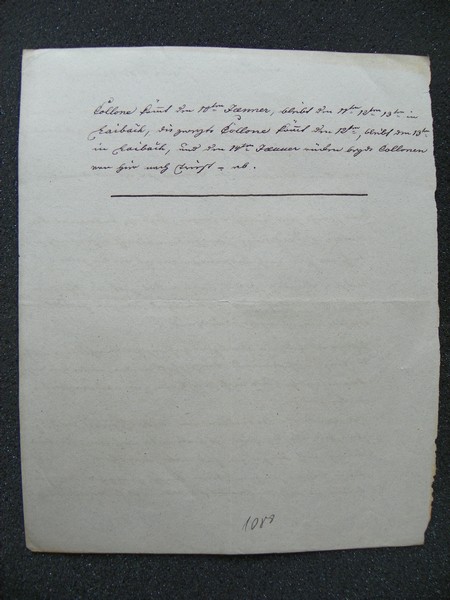 Collone kömt den 10ten Jænner, bleibt den 11ten 12ten 13ten in
Laibach, die zweyte Collone kömt den 12ten, bleibt den 13ten
in Laibach, und den 14ten Jænner rücken beyde Collonen
von hir nach Triest - ab.
1088